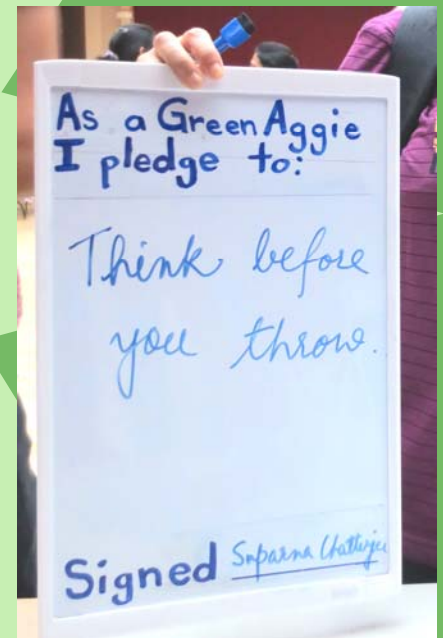 As a Green Aggie
I pledge to:
Think before
you throw.
Signed Suparna Chatterjee